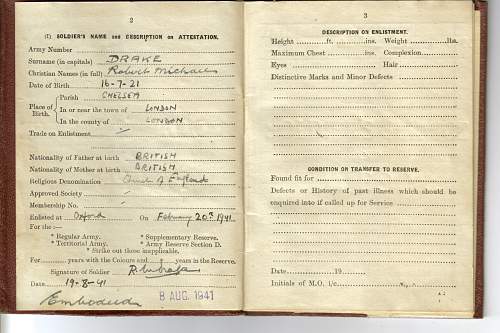 2
(I) SOLDIER'S NAME and DESCRIPTION on ATTESTATION.
Army Number
Surname (in capitals) DRAKE
Christian Names (in full) Robert Michael
Date of Birth 16-7-21
Place of Birth.
Parish CHELSEA
In or near the town of LONDON
In the county of LONDON
Trade on Enlistment
Nationality of Father at birth BRITISH
Nationality of Mother at birth BRITISH
Religious Denomination Church of England
Approved Society
Membership No.
Enlisted at Oxford On February 20th 1941
For the :—
* Regular Army. * Supplementary Reserve.
* Territorial Army. * Army Reserve Section D.
* Strike out those inapplicable.
For years with the Colours and years in the Reserve.
Signature of Soldier
Date 19-8-41
Embodied
8 AUG. 1941
3
DESCRIPTION ON ENLISTMENT.
Height ft. ins. Weight lbs.
Maximum Chest ins. Complexion
Eyes Hair
Distinctive Marks and Minor Defects
CONDITION ON TRANSFER TO RESERVE.
Found fit for
Defects or History of past illness which should be
enquired into if called up for Service
Date 19
Initials of M.O. i/c